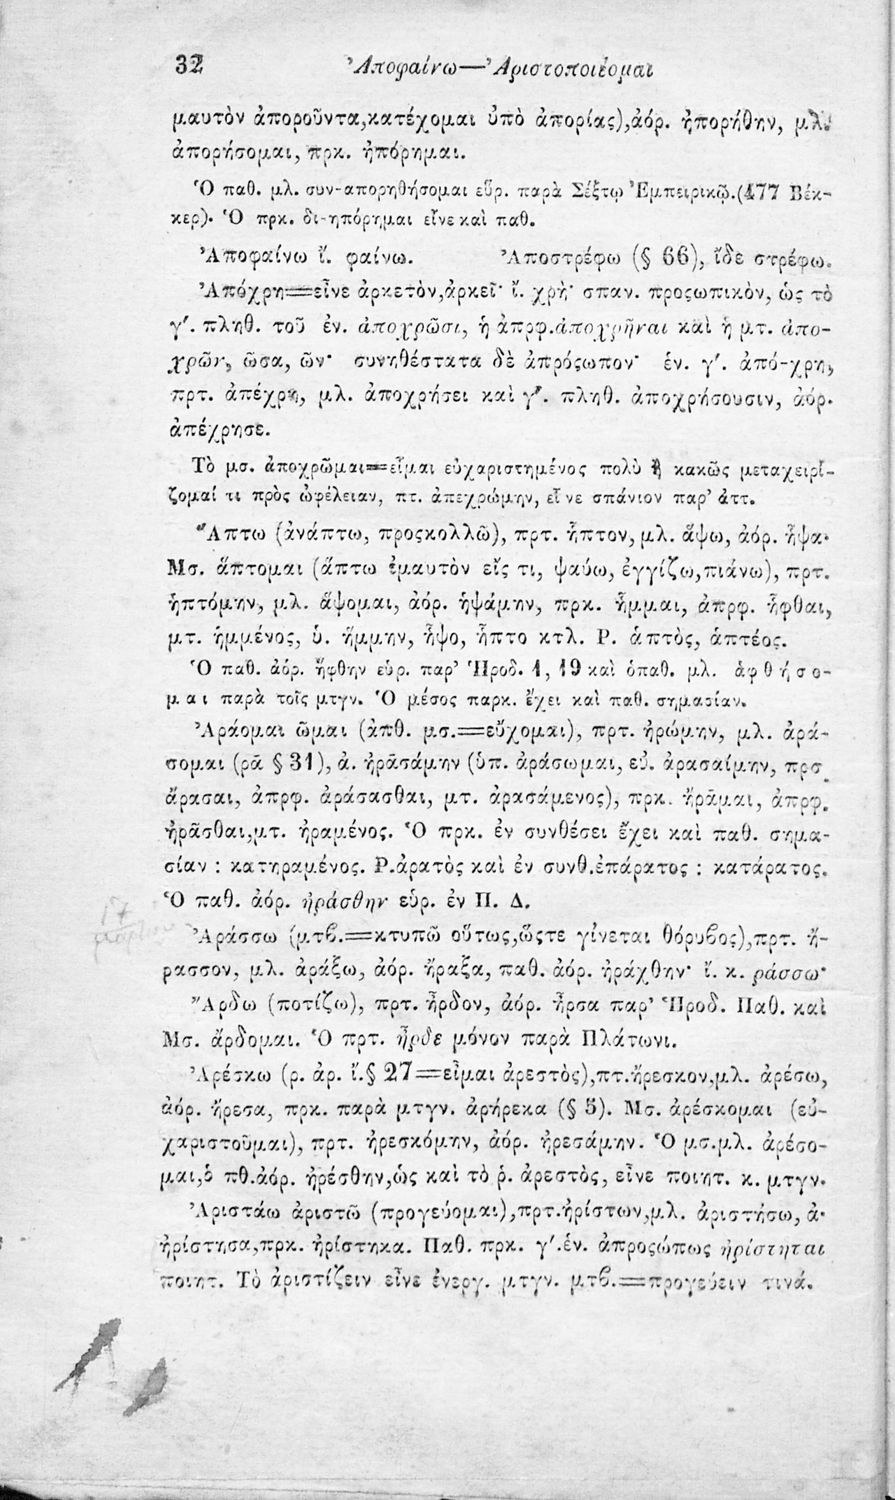 32 Ἀποφαίνω—Ἀριστοποιέομαι
μαυτὸν ἀποροῦντα,κατέχομαι ὑπὸ ἀπορίας),ἀόρ. ἠπορήθην, μλ.
ἀπορήσομαι, πρκ. ἠπόρημαι.
Ὁ παθ. μλ. συν-απορηθήσομαι εὕρ. παρὰ Σέξτῳ Ἐμπειρικῷ.(477 Βέκ-
κερ). Ὁ πρκ. δι-ηπόρημαι εἶνε καὶ παθ.
Ἀποφαίνω ἴ. φαίνω. Ἀποστρέφω (§ 66), ἴδε στρέφω.
Ἀπόχρη=εἶνε ἀρκετὸν,ἀρκεῖ· ἴ. χρὴ· σπαν. προςωπικὸν, ὡς τὸ
γ΄. πληθ. τοῦ ἐν. ἀποχρῶσι, ἡ ἀπρφ.ἀποχρῆναι καὶ ἡ μτ. ἀπο-
χρῶν, ῶσα, ῶν· συνηθέστατα δὲ ἀπρόςωπον· ἑν. γ΄. ἀπό-χρη,
πρτ. ἀπέχρη, μλ. ἀποχρήσει καὶ γ΄. πληθ. ἀποχρήσουσιν, ἀόρ.
ἀπέχρησε.
Τὸ μσ. ἀποχρῶμαι=εἶμαι εὐχαριστημένος πολὺ ἢ κακῶς μεταχειρί-
ζομαί τι πρὸς ὠφέλειαν, πτ. ἀπεχρώμην, εἶνε σπάνιον παρ' ἀττ.
Ἅπτω (ἀνάπτω, προςκολλῶ), πρτ. ἧπτον,μλ. ἅψω, ἀόρ. ἧψα·
Μσ. ἅπτομαι (ἅπτω ἐμαυτὸν εἴς τι, ψαύω, ἐγγίζω,πιάνω), πρτ.
ἡπτόμην, μλ. ἅψομαι, ἀόρ. ἡψάμην, πρκ. ἧμμαι, ἀπρφ. ἧφθαι,
μτ. ἡμμένος, ὑ. ἥμμην, ἧψο, ἧπτο κτλ. Ρ. ἁπτὸς, ἁπτέος.
Ὁ παθ. ἀόρ. ἥφθην εὑρ. παρ' Ἡροδ. 1, 19 καὶ ὁπαθ. μλ. ἁφθήσο-
μαι παρὰ τοῖς μτγν. Ὁ μέσος παρκ. ἔχει καὶ παθ. σημασίαν.
Ἀράομαι ῶμαι (ἀπθ. μσ.=εὔχομαι), πρτ. ἠρώμην, μλ. ἀρά-
σομαι (ρᾶ § 31), ἀ. ἠρᾱσάμην (ὑπ. ἀράσωμαι, εὐ. ἀρασαίμην, προσ.
ἄρασαι, ἀπρφ. ἀράσασθαι, μτ. ἀρασάμενος), πρκ. ἤρᾱμαι, ἀπρφ.
ἠρᾶσθαι,μτ. ἠραμένος. Ὁ πρκ. ἐν συνθέσει ἔχει καὶ παθ. σημα-
σίαν : κατηραμένος. Ρ.ἀρατὸς καὶ ἐν συνθ.ἐπάρατος : κατάρατος.
Ὁ παθ. ἀόρ. ἠράσθην εὑρ. ἐν Π. Δ.
Ἀράσσω (μτβ.=κτυπῶ οὕτως,ὥςτε γίνεται θόρυβος),πρτ. ἤ-
ρασσον, μλ. ἀράξω, ἀόρ. ἤραξα, παθ. ἀόρ. ἠράχθην· ἴ. κ. ράσσω·
Ἄρδω (ποτίζω), πρτ. ἦρδον, ἀόρ. ἦρσα παρ' Ἡροδ. Παθ. καὶ
Μσ. ἄρδομαι. Ὁ πρτ. ἦρδε μόνον παρὰ Πλάτωνι.
Ἀρέσκω (ρ. ἀρ. ἴ.§ 27=εἶμαι ἀρεστὸς),πτ.ἤρεσκον,μλ. ἀρέσω,
ἀόρ. ἤρεσα, πρκ. παρὰ μτγν. ἀρήρεκα (§ 5). Μσ. ἀρέσκομαι (εὐ-
χαριστοῦμαι), πρτ. ἠρεσκόμην, ἀόρ. ἠρεσάμην. Ὁ μσ.μλ. ἀρέσο-
μαι,ὁ πθ.ἀόρ. ἠρέσθην,ὡς καὶ τὸ ῥ. ἀρεστὸς, εἶνε ποιητ. κ. μτγν.
Ἀριστάω ἀριστῶ (προγεύομαι),πρτ.ἠρίστων,μλ. ἀριστήσω, ἀ·
ἠρίστησα,πρκ. ἠρίστηκα. Παθ. πρκ. γ΄.ἑν. ἀπροςώπως ἠρίστηται
ποιητ. Τὸ ἀριστίζειν εἶνε ἐνεργ. μτγν. μτβ.=προγεύειν τινά.